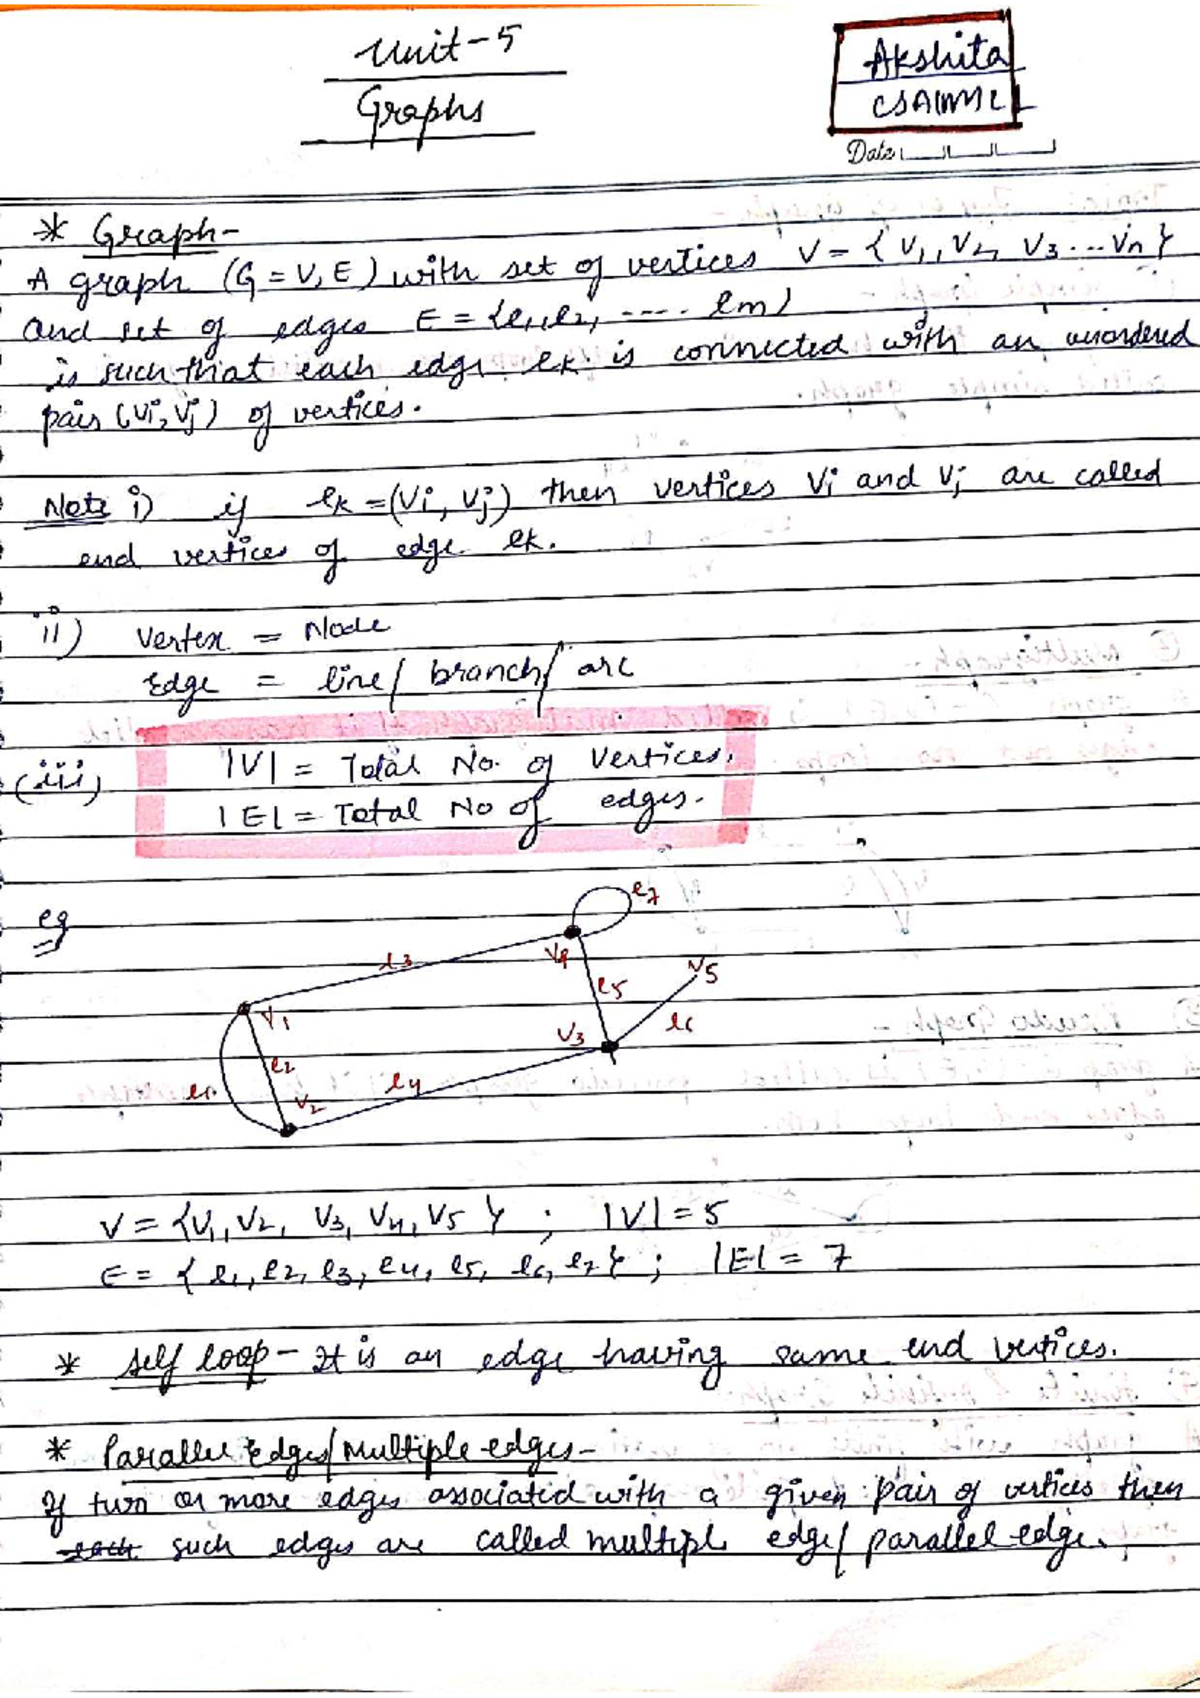 Unit-5
Graphs
Akshita
CSAIML
Date
* Graph-
A graph (G = V, E) with set of vertices V = { V1, V2, V3 ... Vn }
and set of edges E = {e1, e2, .... em)
is such that each edge ek is connected with an unordered
pair (Vi, Vj) of vertices.
Note i) if ek = (Vi, Vj) then vertices Vi and Vj are called
end vertices of edge ek.
ii) Vertex = Node
Edge = line/ branch/ arc
(iii) |V| = Total No. of Vertices.
|E| = Total No of edges.
eg
e7
V4
e3
V5
e5
V1
V3
e6
e2
e1
e4
V2
V = {V1, V2, V3, V4, V5 } ; |V| = 5
E = { e1, e2, e3, e4, e5, e6, e7 } ; |E| = 7
* Self loop - It is an edge having same end vertices.
* Parallel Edges/Multiple edges-
If two or more edges associated with a given pair of vertices then
each such edges are called multiple edge/ parallel edge.